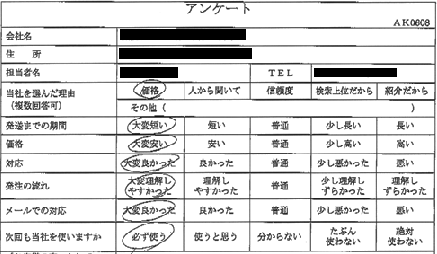 アンケート
AK0608
会社名
住所
担当者名 TEL
当社を選んだ理由 (複数回答可) 価格 人から聞いて 信頼度 検索上位だから 紹介だから
その他( )
発送までの期間 大変短い 短い 普通 少し長い 長い
価格 大変安い 安い 普通 少し高い 高い
対応 大変良かった 良かった 普通 少し悪かった 悪い
発注の流れ 大変理解しやすかった 理解しやすかった 普通 少し理解しずらかった 理解しずらかった
メールでの対応 大変良かった 良かった 普通 少し悪かった 悪い
次回も当社を使いますか 必ず使う 使うと思う 分からない たぶん使わない 絶対使わない